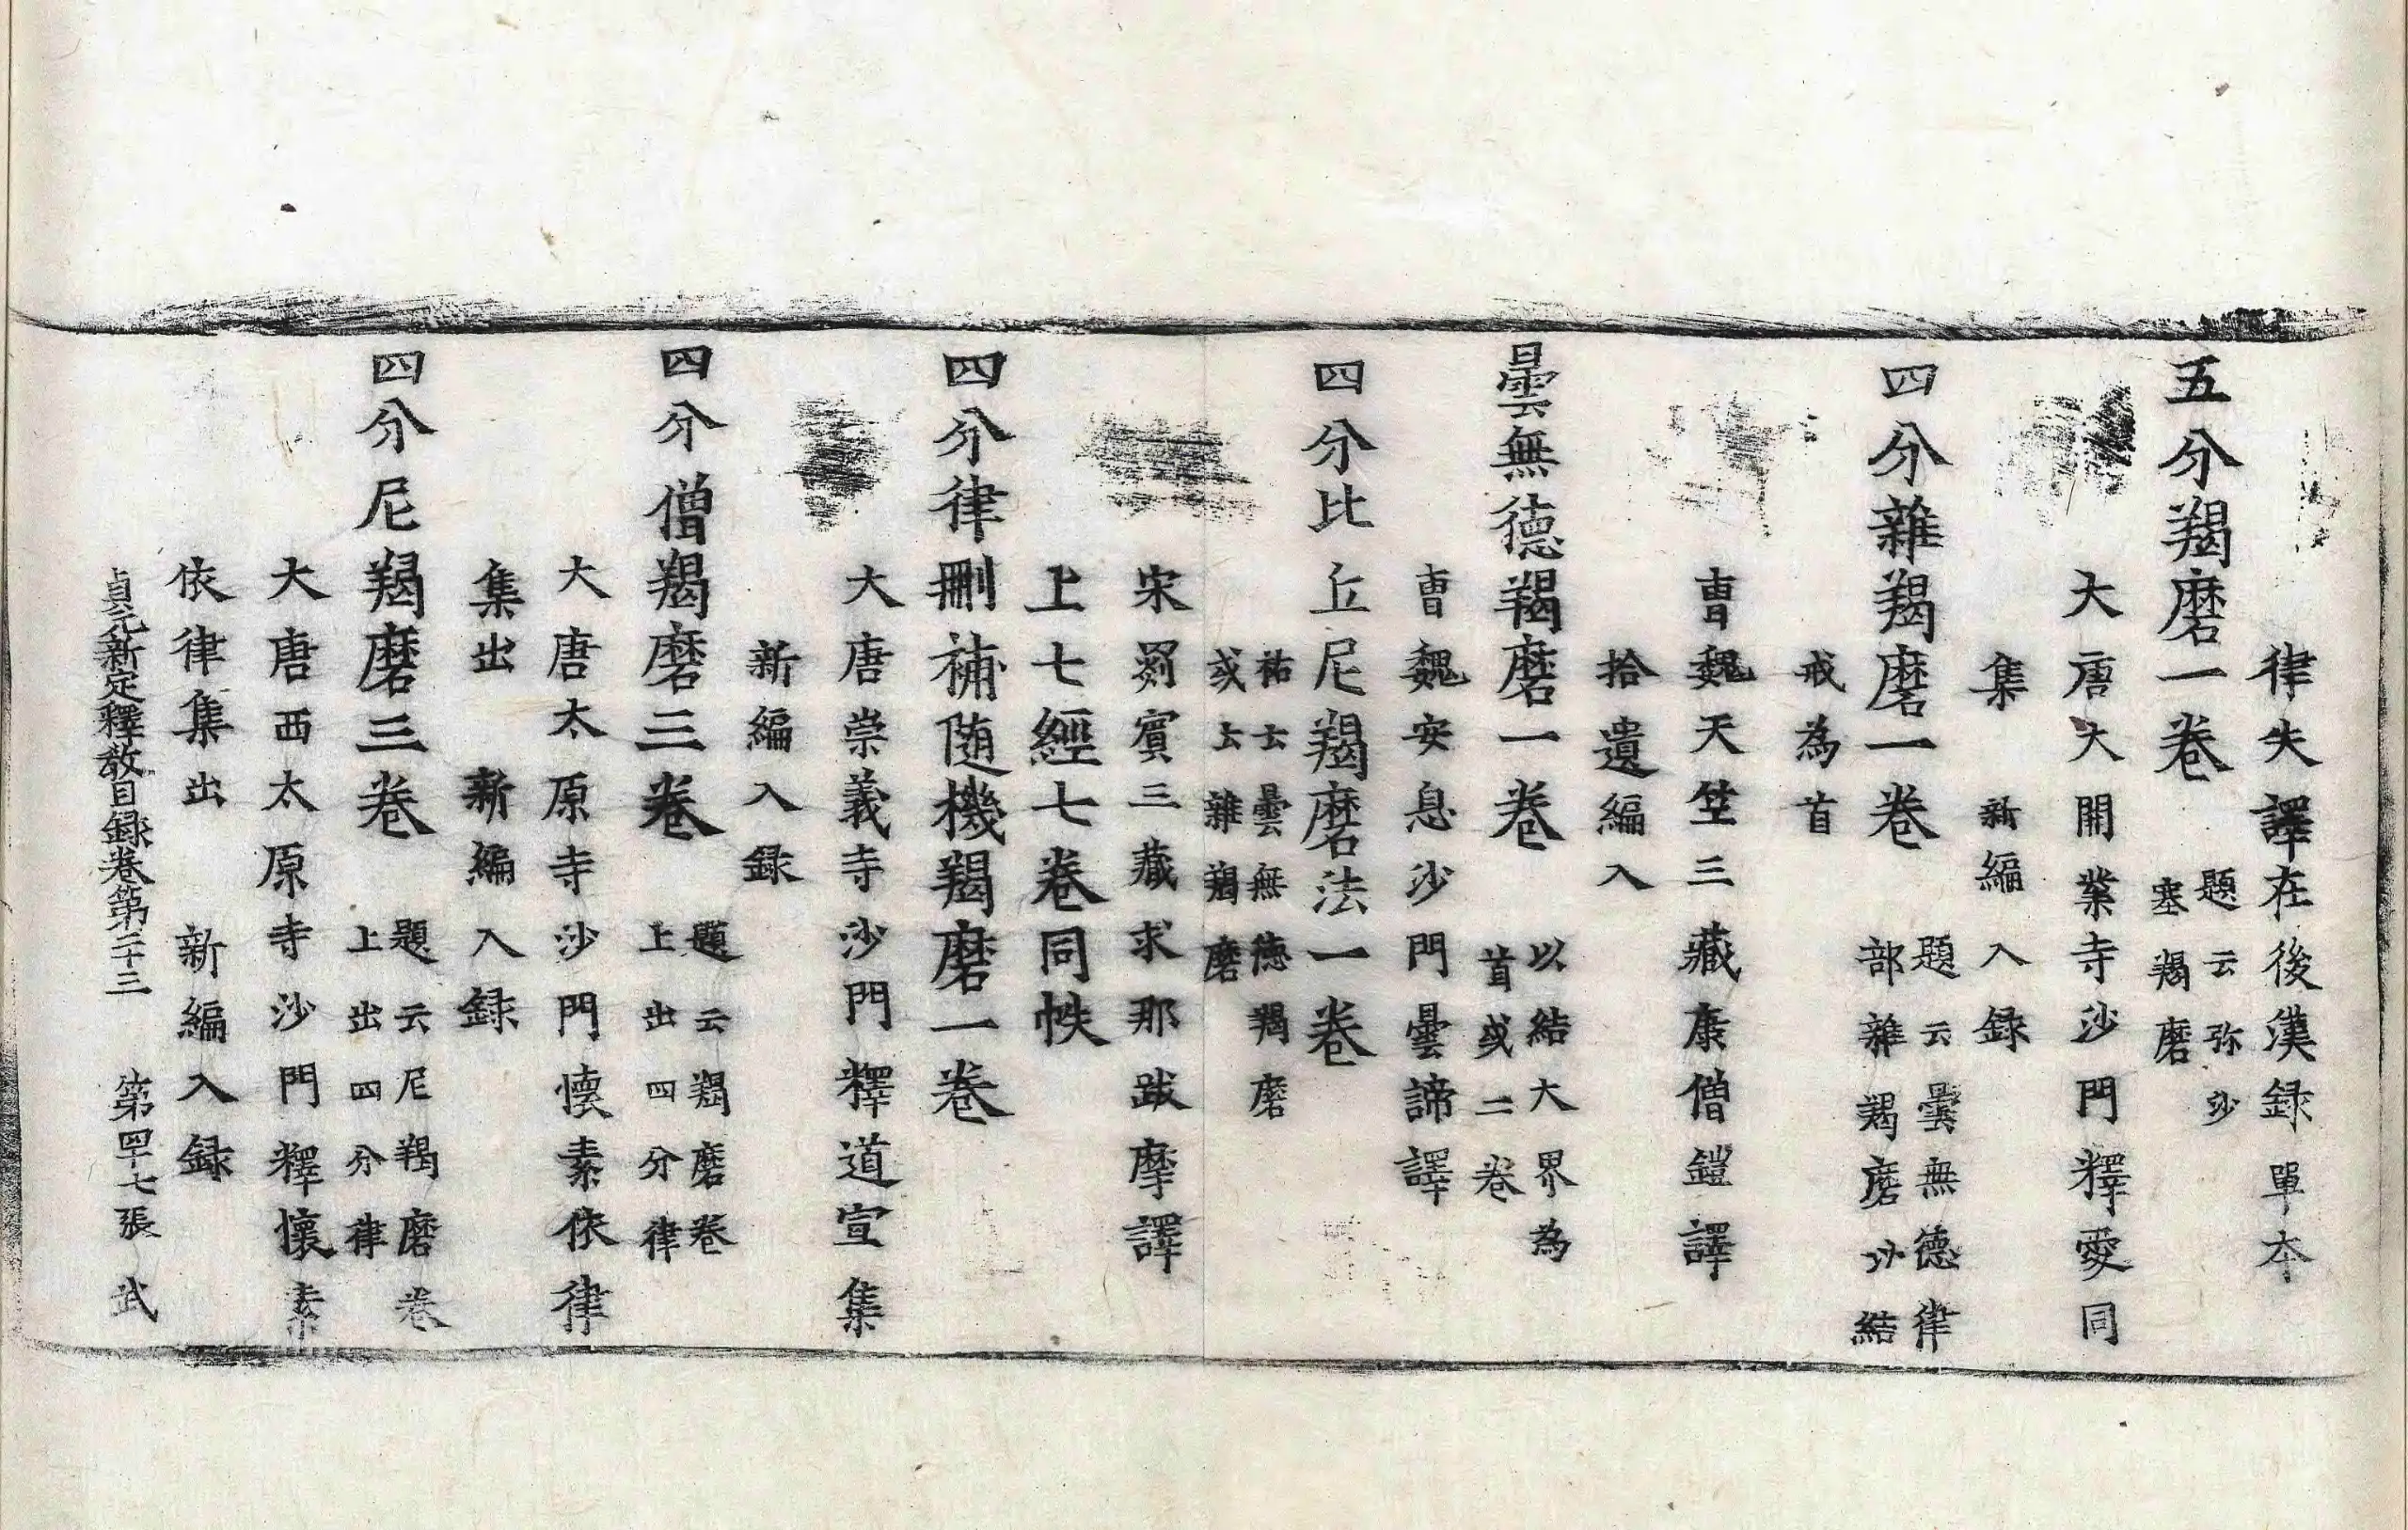 律失譯在後漢録單本
五分羯磨一卷 題云弥沙
塞羯磨
大唐大開業寺沙門釋愛同
集 新編入録
四分雜羯磨一卷 題云曇無德律
部雜羯磨以結
戒為首
曹魏天竺三藏康僧鎧譯
拾遺編入
曇無德羯磨一卷 以結大界為
首或二卷
曹魏安息沙門曇諦譯
四分比丘尼羯磨法一卷
祐云曇無德羯磨
或云雜羯磨
宋罽賓三藏求那跋摩譯
上七經七卷同帙
四分律刪補随機羯磨一卷
大唐崇義寺沙門釋道宣集
新編入録
四分僧羯磨三卷 題云羯磨卷
上出四分律
大唐太原寺沙門懷素依律
集出 新編入録
四分尼羯磨三卷 題云尼羯磨卷
上出四分律
大唐西太原寺沙門釋懷素
依律集出 新編入録
貞元新定釋教目録卷第二十三 第四十七張 武